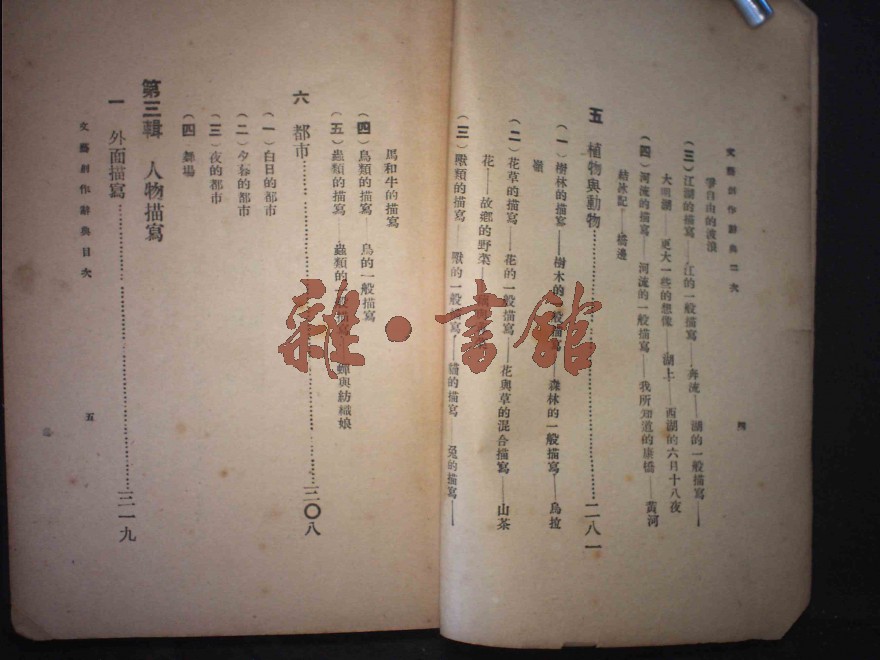 文藝創作辭典目次
四
爭自由的波浪
（三）江湖的描寫——江的一般描寫——奔流——湖的一般描寫——
大明湖——更大一些的想像——湖上——西湖的六月十八夜
（四）河流的描寫——河流的一般描寫——我所知道的康橋——黃河
結冰記——橋邊
五 植物與動物……二八一
（一）樹林的描寫——樹木的一般描寫——森林的一般描寫——烏拉
嶺
（二）花草的描寫——花的一般描寫——花與草的混合描寫——山茶
花——故鄉的野菜——
（三）獸類的描寫——獸的一般描寫——貓的描寫——兔的描寫——
馬和牛的描寫
（四）鳥類的描寫——鳥的一般描寫
（五）蟲類的描寫——蟲類的一般描寫——蟬與紡織娘
六 都市……三〇八
（一）白日的都市
（二）夕暮的都市
（三）夜的都市
（四）舞場
第三輯 人物描寫
一 外面描寫……三一九
文藝創作辭典目次
五
雜·書館